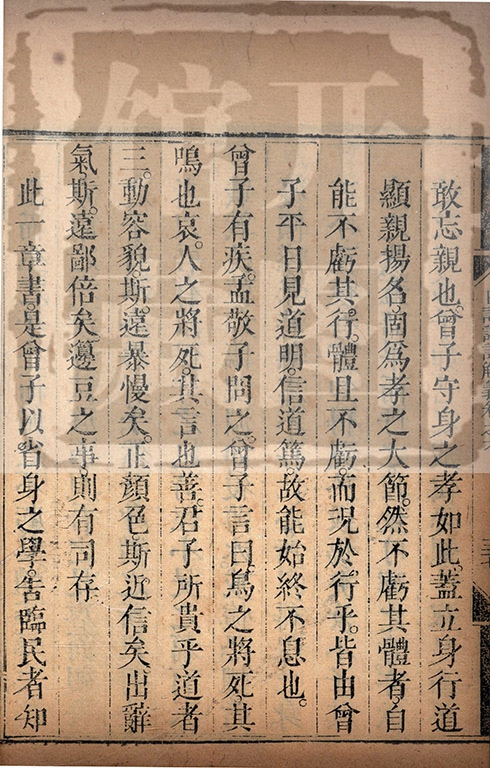 敢忘親也。曾子守身之孝如此。蓋立身行道
顯親揚名。固爲孝之大節。然不虧其體者。自
能不虧其行。體且不虧。而況於行乎。皆由曾
子平日見道明。信道篤。故能始終不息也。
曾子有疾。孟敬子問之。曾子言曰。鳥之將死。其
鳴也哀。人之將死。其言也善。君子所貴乎道者
三。動容貌。斯遠暴慢矣。正顏色斯近信矣。出辭
氣斯遠鄙倍矣。籩豆之事則有司存
此一章書。是曾子以省身之學。告臨民者。知